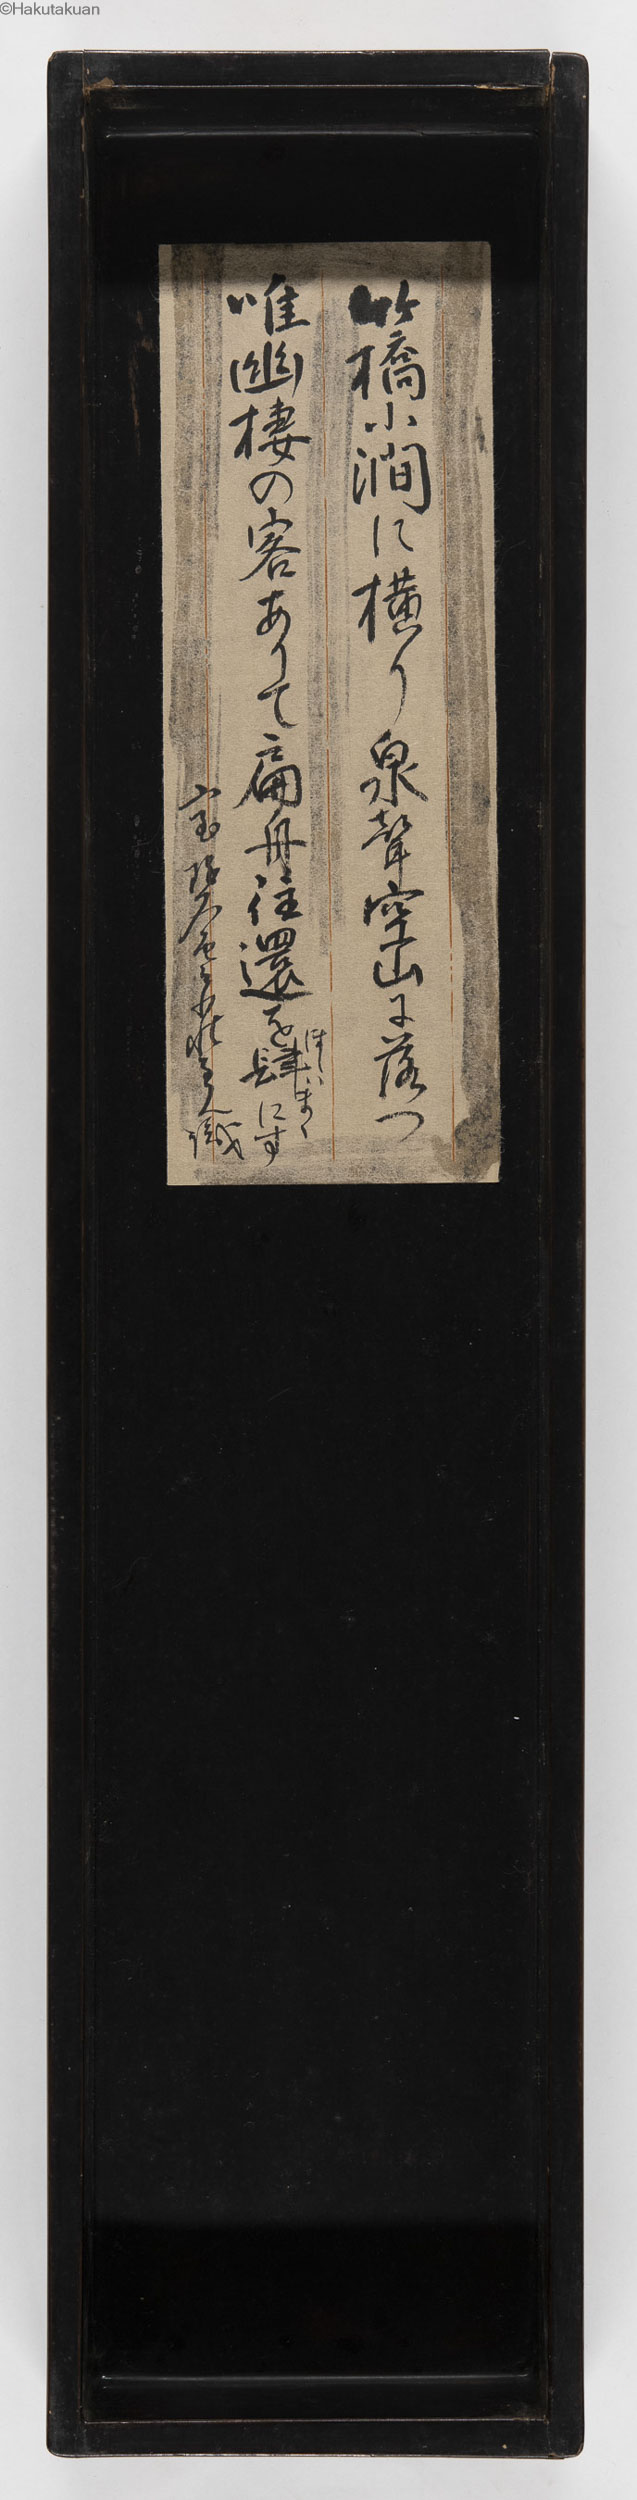 ©Hakutakuan
竹橋小澗に横り泉聲空山に落つ
唯幽棲の客ありて扁舟往還を肆にす
ほしいまゝ
識